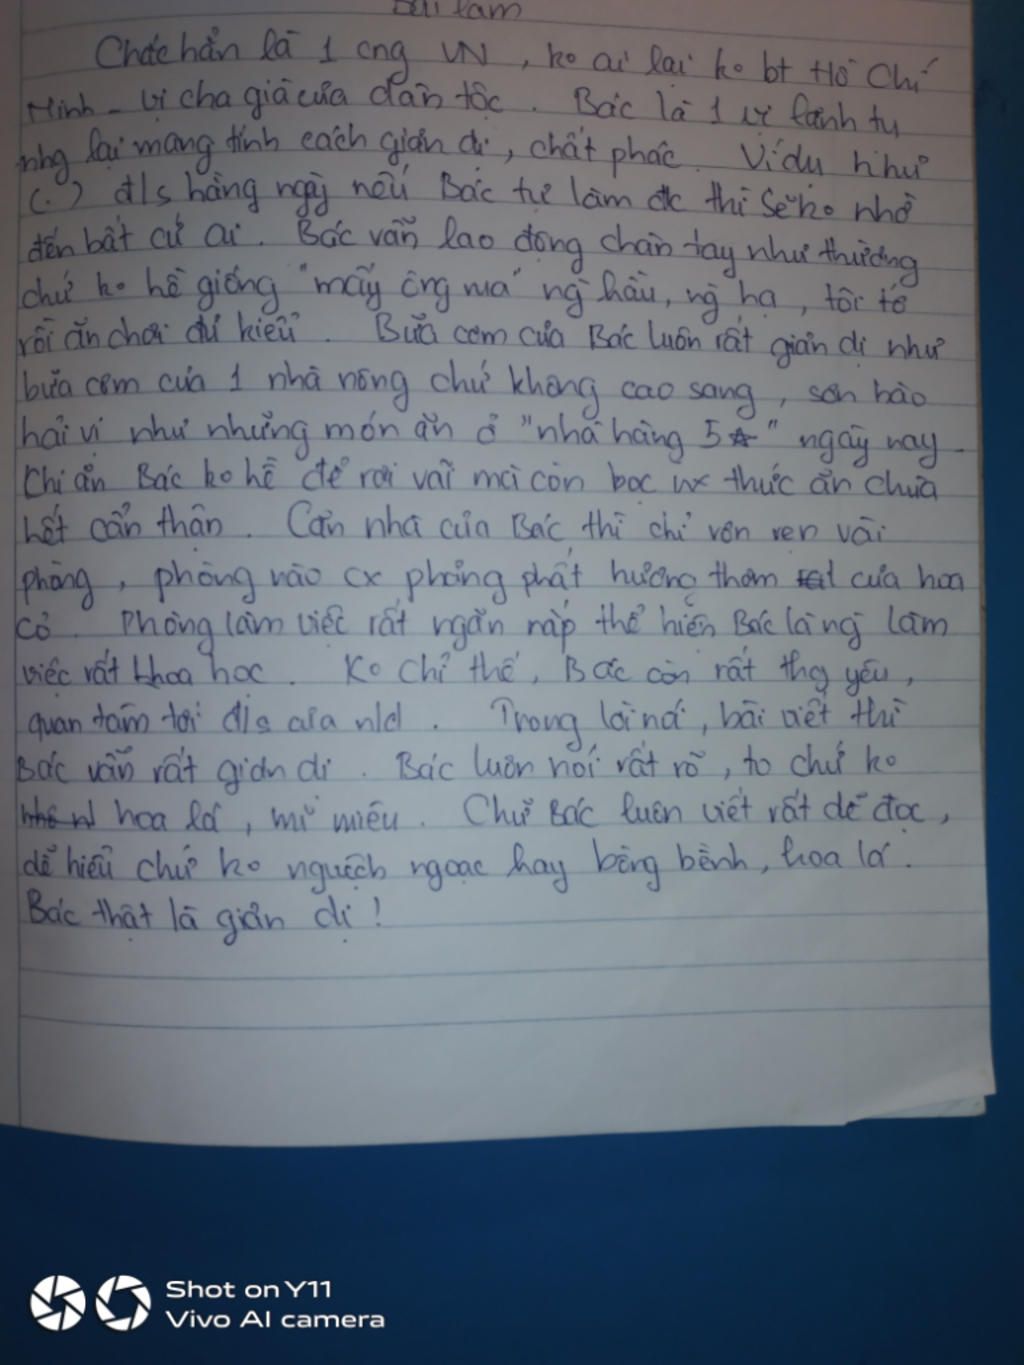 Bài làm
Chắc hẳn là 1 cng VN, ko ai lại ko bt Hồ Chí
Minh - vị cha già của dân tộc. Bác là 1 vị lãnh tụ
nhg lại mang tính cách giản dị, chất phác. Ví dụ như
(.) đ/s hằng ngày nếu Bác tự làm đc thì sẽ ko nhờ
đến bất cứ ai. Bác vẫn lao động chân tay như thường
chứ ko hề giống "mấy ông ng hầu, ng hạ, tôi tớ
rồi ăn chơi đủ kiểu. Bữa cơm của Bác luôn rất giản dị như
bữa cơm của 1 nhà nông chứ không cao sang, sơn hào
hải vị như những món ăn ở "nhà hàng 5☆" ngày nay.
Chi ăn Bác ko hề để rơi vãi mà còn bọc thức ăn chưa
hết cẩn thận. Căn nhà của Bác thì chỉ vỏn vẹn vài
phòng, phòng nào cx phảng phất hương thơm của hoa
cỏ. Phòng làm việc rất ngăn nắp thể hiện Bác là ng làm
việc rất khoa học. Ko chỉ thế, Bác còn rất thg yêu,
quan tâm tới đ/s của nld. Trong lời nói, bài viết thì
Bác vẫn rất giản dị. Bác luôn nói rất rõ, to chứ ko
hoa lá, mĩ miều. Chữ Bác luôn viết rất dễ đọc,
dễ hiểu chứ ko nguệch ngoạc hay bồng bềnh, hoa lá.
Bác thật là giản dị!
Shot on Y11
Vivo AI camera